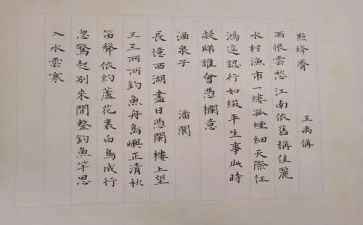 點絳脣
王禹偁
雨恨雲愁江南依舊稱佳麗
水村漁市一縷孤煙細天際征
鴻遙認行如綴平生事此時
凝睇誰會憑欄意
酒泉子　潘閬
長憶西湖盡日憑闌樓上望
三三兩兩釣魚舟島嶼正清秋
笛聲依約蘆花裏白鳥成行
忽驚起別來閒整釣魚竿思
入水雲寒